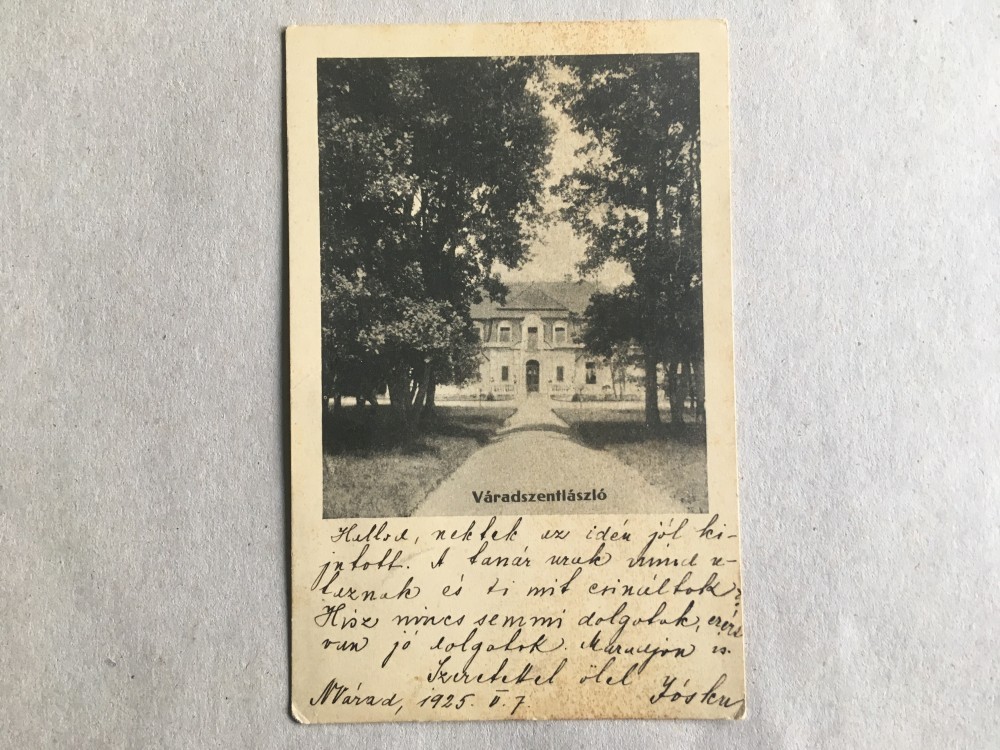 Váradszentlászló
Hallod, nektek az idén jól ki-
jutott. A tanár urak mind u-
taznak és ti mit csináltok?
Hisz nincs semmi dolgotok, ezért
van jó dolgotok. Maradjon is.
Szeretettel ölel Jóska
NVárad, 1925. V. 7